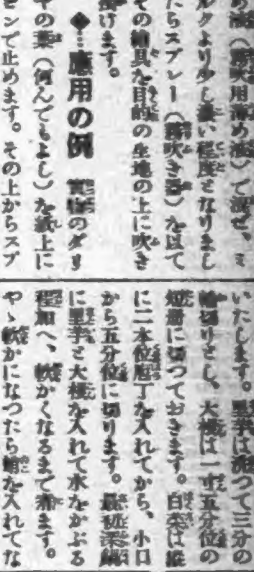 め液(霧吹用薄め液)で混ぜ、ミ
ルクより少し濃い程度となりまし
たらスプレー(霧吹き器)を以て
その繪具を目的の生地の上に吹き
掛けます。
◆…應用の例 のダリ
ヤの葉(何んでもよし)を紙上に
ピンで止めます。その上からスプ
いたします。里芋は洗つて三分の
輪切りとし、大根は一寸五分位の
短冊に切つておきます。白菜は縦
に二本位庖丁を入れてから、小口
から五分位に切ります。
に里芋と大根を入れて水をかぶる
程加へ、軟かくなるまで煮ます。
やゝ軟かになつたら を入れてな